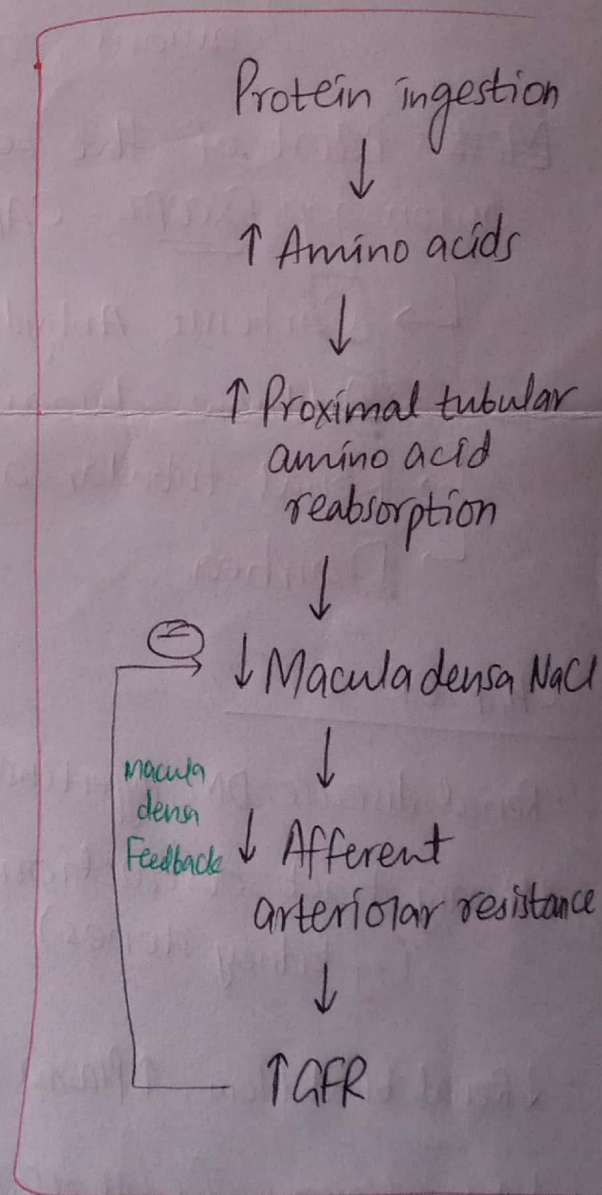 Protein ingestion
↓
↑ Amino acids
↓
↑ Proximal tubular
amino acid
reabsorption
↓
⊖ ↓ Macula densa NaCl
↓
Macula
densa
Feedback
↓ Afferent
arteriolar resistance
↓
↑ GFR